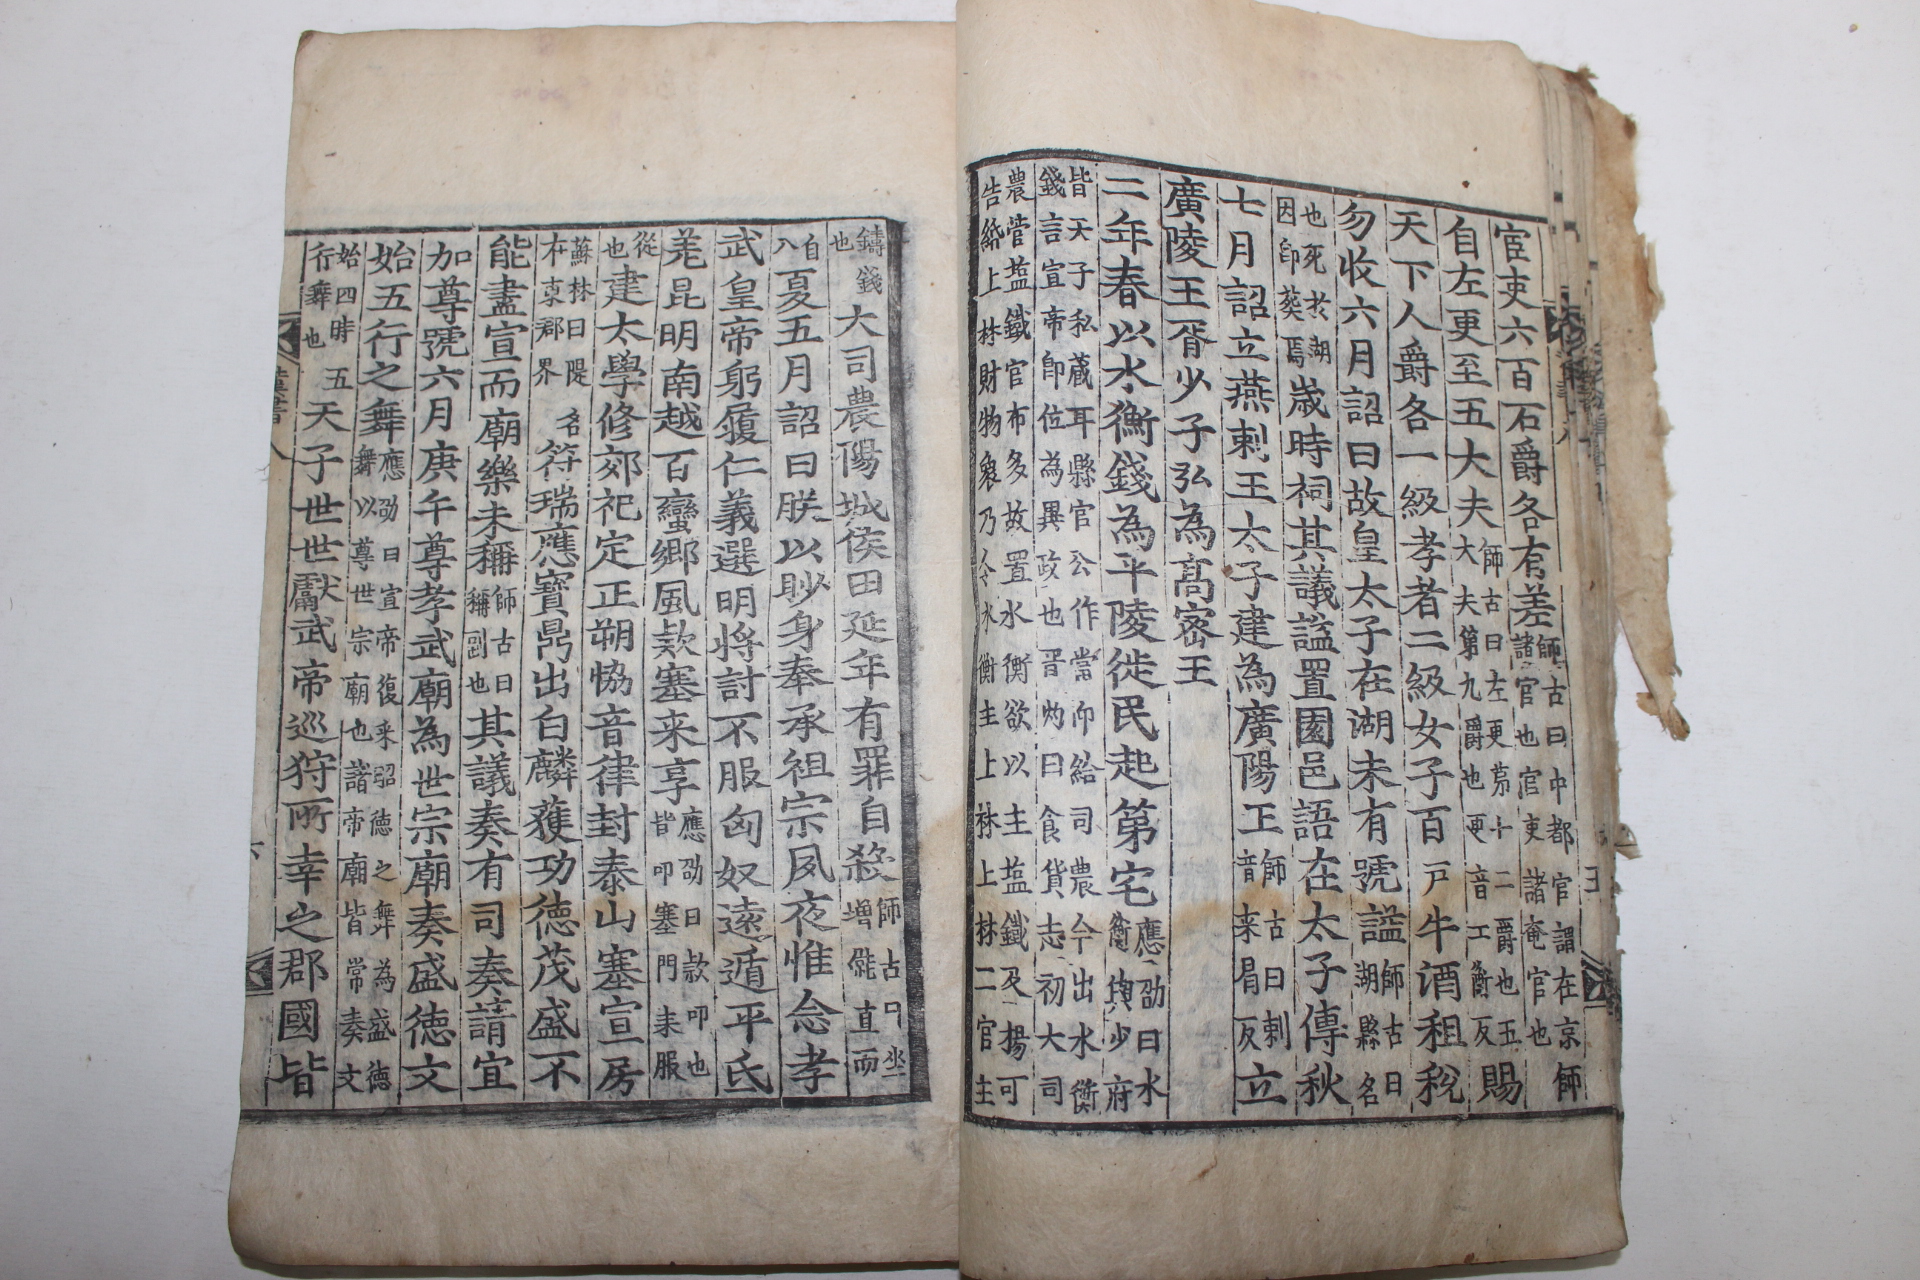 宦吏六百石爵各有差師古曰中都官謂在京師諸官也宦吏諸奄官也
自左更至五大夫師古曰左更第十二爵也五大夫第九爵也更音工衡反賜
天下人爵各一級孝者二級女子百戶牛酒租稅
勿收六月詔曰故皇太子在湖未有號謚師古曰湖縣名
也死於湖因即葬焉歲時祠其議謚置園邑語在太子傳秋
七月詔立燕剌王太子建為廣陽王師古曰剌音来曷反立
廣陵王胥少子弘為高密王
二年春以水衡錢為平陵徙民起第宅應劭曰水衡與少府
皆天子私藏耳縣官公作當仰給司農今出水衡錢言宣帝即位為異政也晉灼曰食貨志初大司
農管塩鐵官布多故置水衡欲以主塩鐵及楊可告緡上林財物衆乃令水衡主上林上林二官主
鑄錢也大司農陽城侯田延年有罪自殺師古曰坐增僦直而
自入夏五月詔曰朕以眇身奉承祖宗夙夜惟念孝
武皇帝躬履仁義選明將討不服匈奴遠遁平氐
羌昆明南越百蠻鄉風款塞来享應劭曰款叩也皆叩塞門来服
從也建太學修郊祀定正朔恊音律封泰山塞宣房
蘇林曰隄名在東郡界符瑞應寶鼎出白麟獲功德茂盛不
能盡宣而廟樂未稱師古曰稱副也其議奏有司奏請宜
加尊號六月庚午尊孝武廟為世宗廟奏盛德文
始五行之舞應劭曰宣帝復采昭德之舞為盛德舞以尊世宗廟也諸帝廟皆常奏文
始四時五行舞也天子世世獻武帝巡狩所幸之郡國皆
漢書八
六